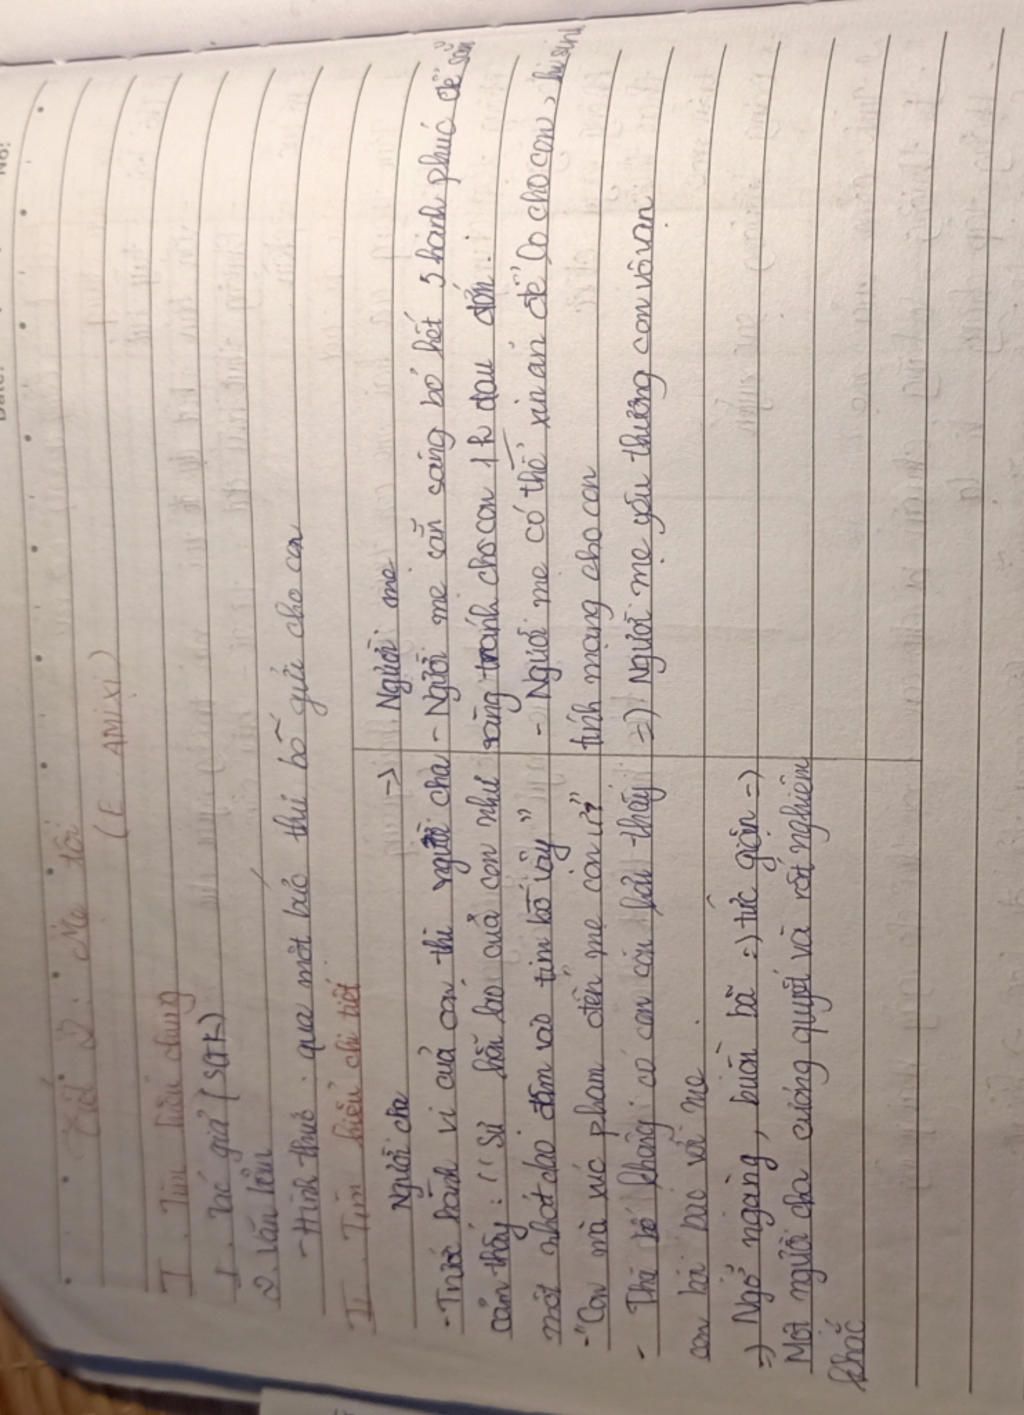 Tiết 2: Mẹ tôi
(E. AMIXI)
I. Tìm hiểu chung
1. Tác giả (SGK)
2. Văn bản
- Hình thức: qua một bức thư bố gửi cho con
II. Tìm hiểu chi tiết
Người cha -> Người mẹ
- Trước hành vi của con thì người cha
cảm thấy: "Sự hỗn láo của con như
một nhát dao đâm vào tim bố vậy"
- "Con mà xúc phạm đến mẹ con ư?"
- Thà bố không có con còn hơn thấy
con bội bạc với mẹ.
=> Ngỡ ngàng, buồn bã => tức giận =>
Một người cha cương quyết và rất nghiêm
khắc
- Người mẹ sẵn sàng bỏ hết 5 hạnh phúc để sẵn
sàng tránh cho con 1h đau đớn.
- Người mẹ có thể xin ăn để lo cho con, hi sinh
tính mạng cho con
=> Người mẹ yêu thương con vô vàn